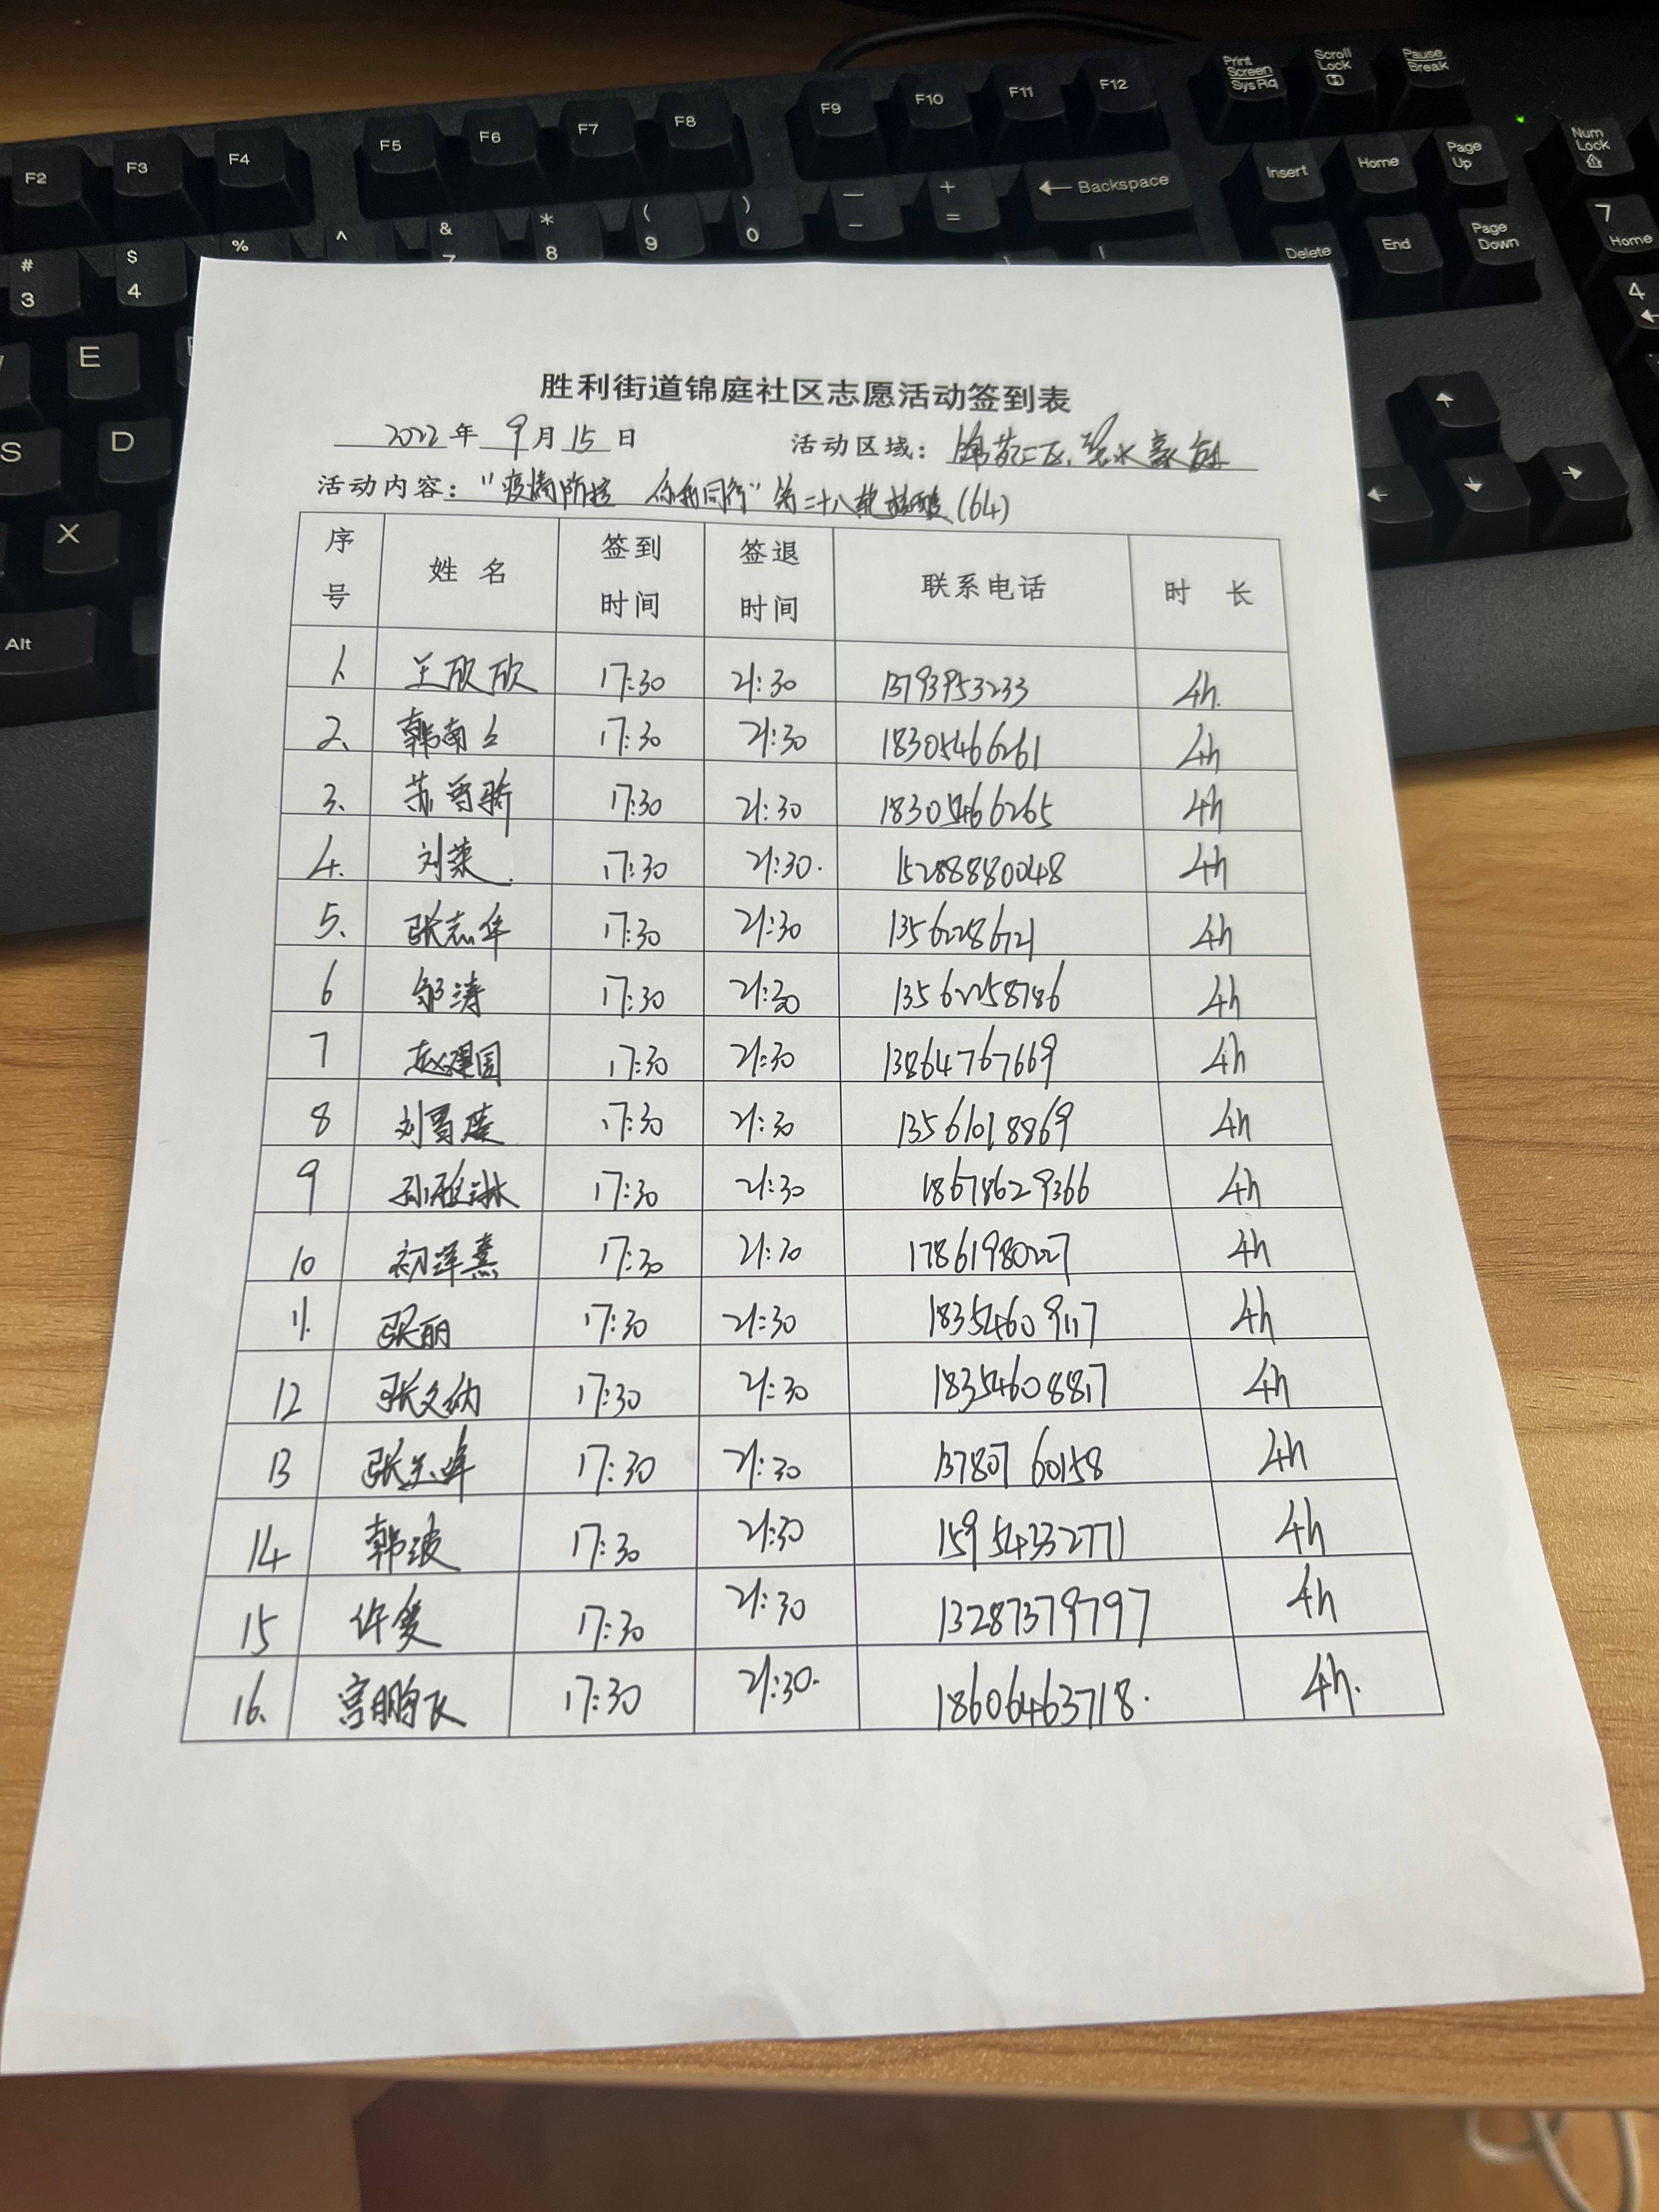 Print Screen SysRq
Scroll Lock
Pause Break
F2 F3 F4 F5 F6 F7 F8 F9 F10 F11 F12
Insert Home Page Up Num Lock
# 3 $ 4 % ^ & 7 * 8 ( 9 ) 0 — - + = ← Backspace
Delete End Page Down 7 Home
E 4 ←
S D
X
Alt
胜利街道锦庭社区志愿活动签到表
2022年 9月15日 活动区域：锦苑二区、碧水豪庭
活动内容："疫情防控 你我同行"第二十八轮核酸(64)
序号 姓名 签到时间 签退时间 联系电话 时长
1、 王欣欣 17:30 21:30 13793953233 4h.
2、 韩南 17:30 21:30 18305466261 4h
3、 苏 骄 17:30 21:30 18305466265 4h
4. 刘荣 17:30 21:30. 15288880048 4h
5、 张志华 17:30 21:30 13562286721 4h
6 邹涛 17:30 21:30 13562258786 4h
7 赵建国 17:30 21:30 13864767669 4h
8 刘 17:30 21:30 13561018869 4h
9 孙 17:30 21:30 18678629366 4h
10 初泽熹 17:30 21:30 17861980227 4h
11. 张丽 17:30 21:30 18354609117 4h
12 张文纳 17:30 21:30 18354608817 4h
13 张 17:30 21:30 13780760158 4h
14 韩波 17:30 21:30 15954332771 4h
15 许爱 17:30 21:30 13287379797 4h
16、 宫鹏飞 17:30 21:30. 18606463718. 4h.